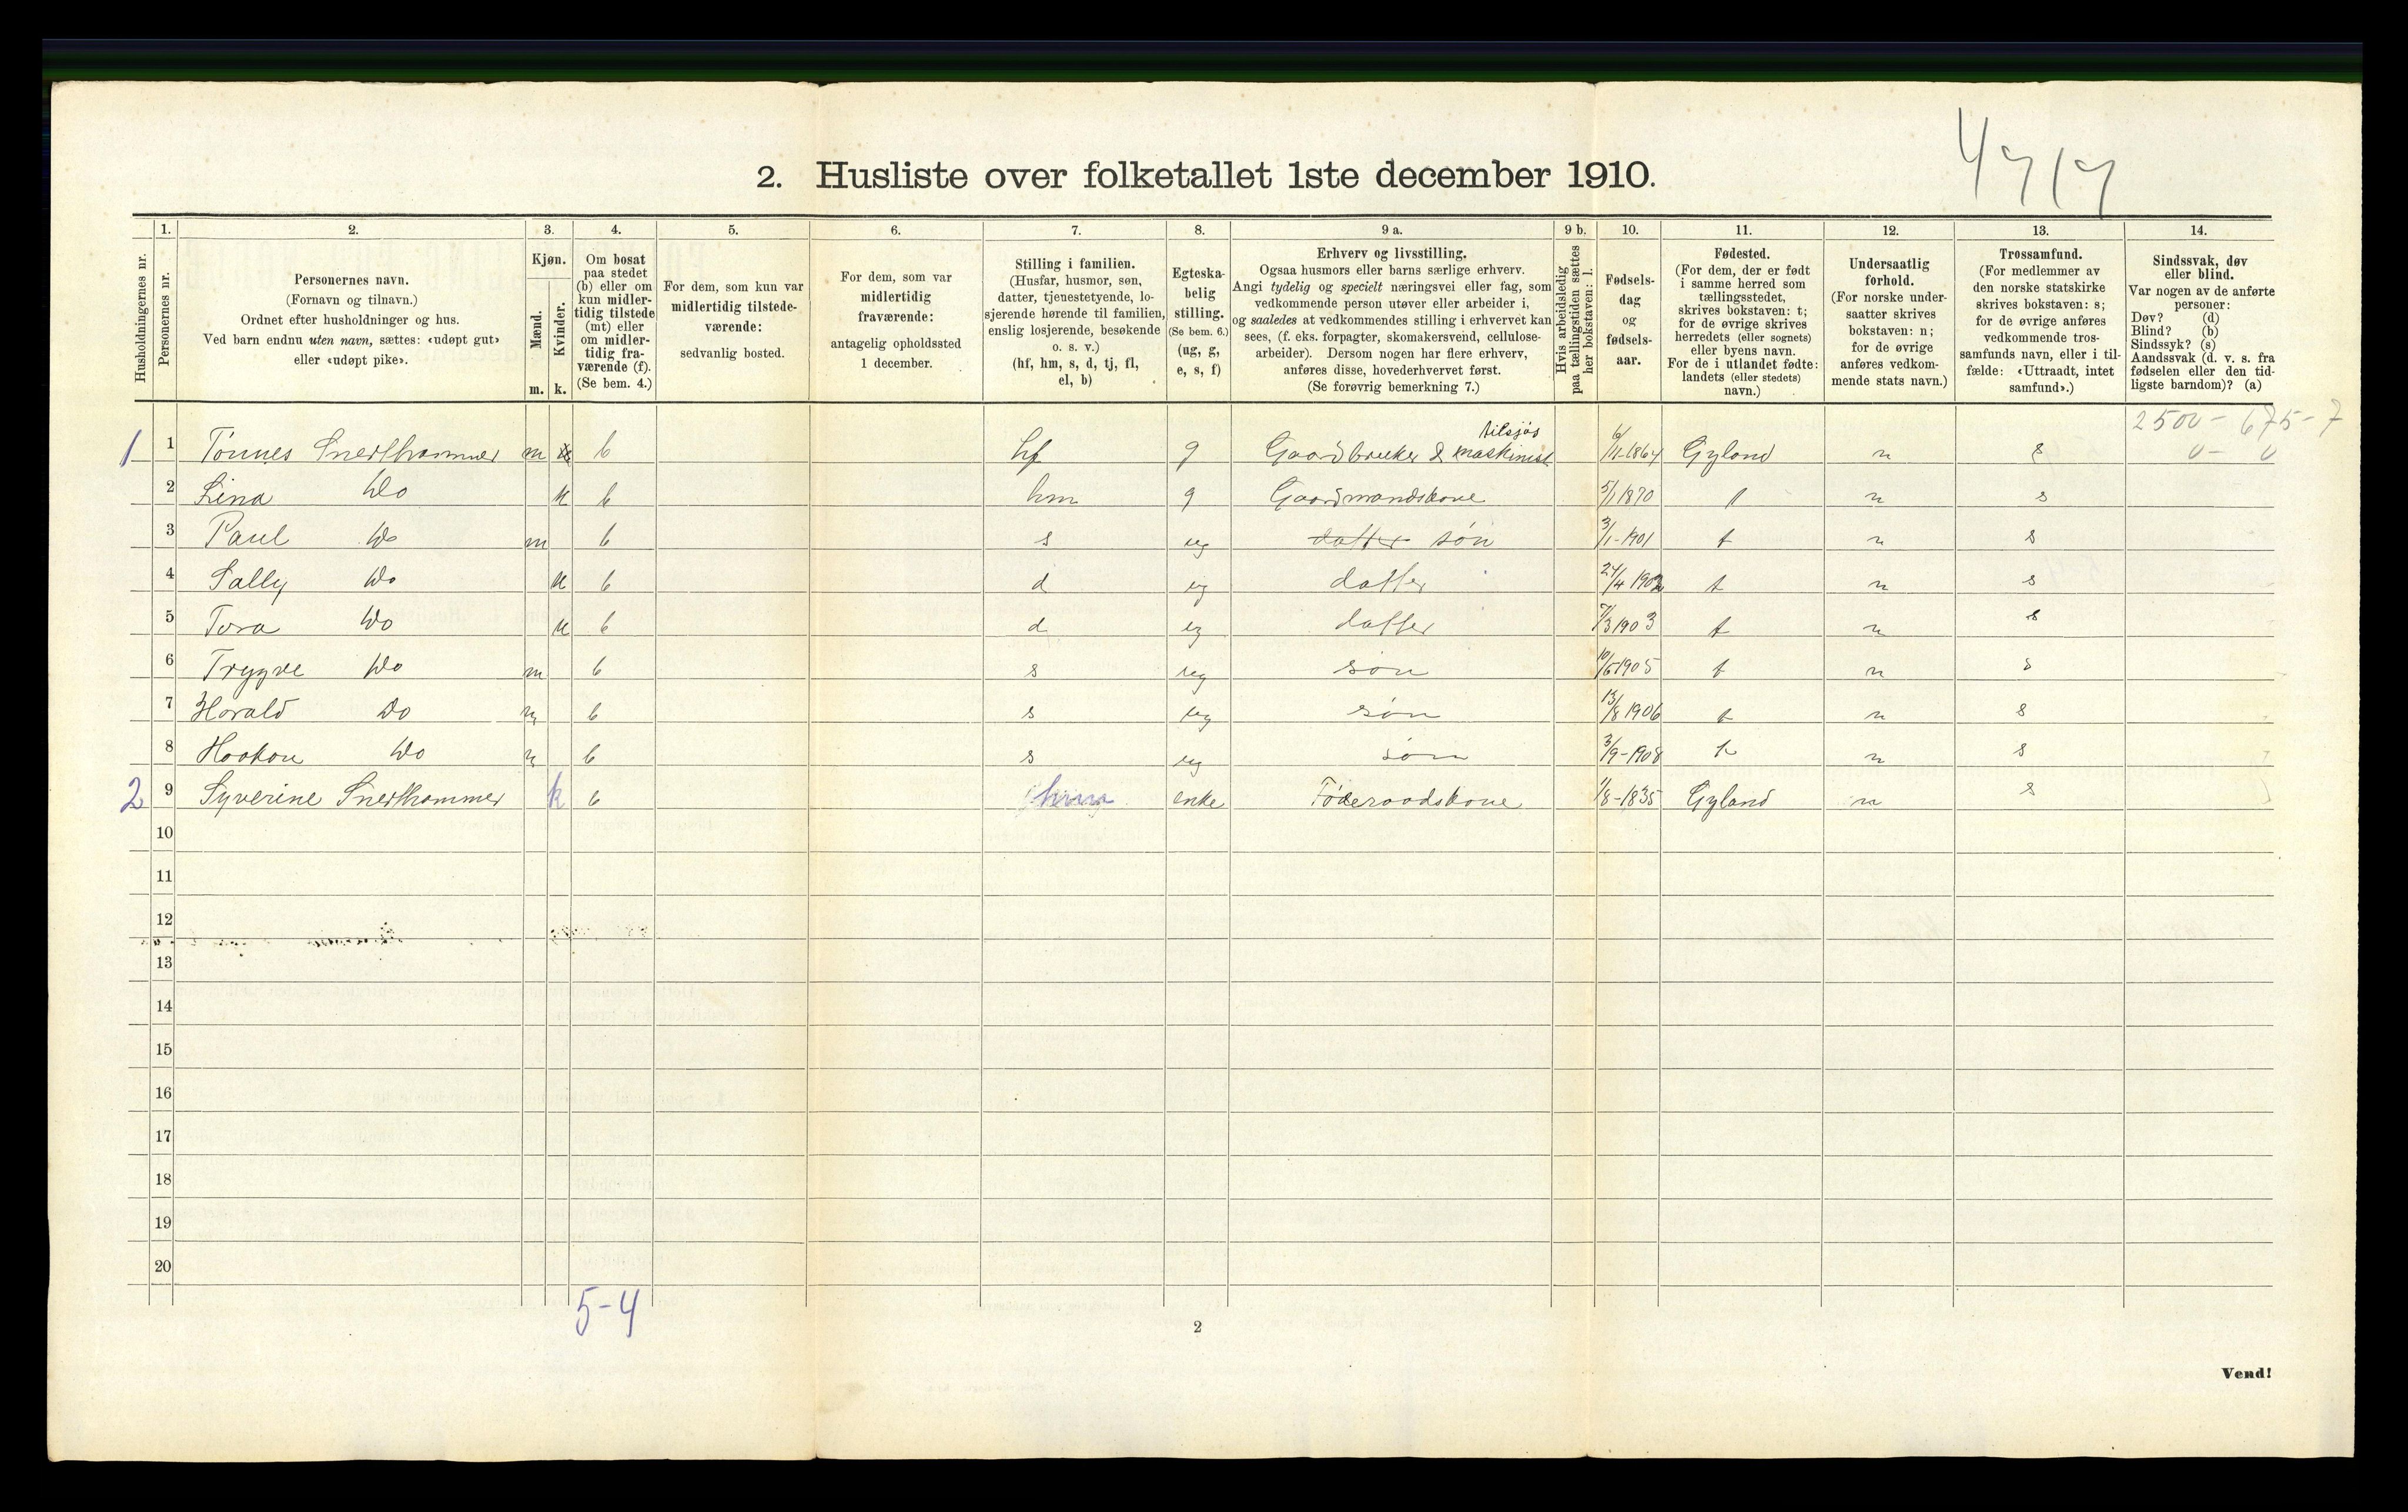 4717
2. Husliste over folketallet 1ste december 1910.
1. 2. 3. 4. 5. 6. 7. 8. 9 a. 9 b. 10. 11. 12. 13. 14.
Husholdningernes nr.
Personernes nr.
Personernes navn.
(Fornavn og tilnavn.)
Ordnet efter husholdninger og hus.
Ved barn endnu uten navn, sættes: «udøpt gut»
eller «udøpt pike».
Kjøn.
Mænd.
m.
Kvinder.
k.
Om bosat
paa stedet
(b) eller om
kun midler-
tidig tilstede
(mt) eller
om midler-
tidig fra-
værende (f).
(Se bem. 4.)
For dem, som kun var
midlertidig tilstede-
værende:
sedvanlig bosted.
For dem, som var
midlertidig
fraværende:
antagelig opholdssted
1 december.
Stilling i familien.
(Husfar, husmor, søn,
datter, tjenestetyende, lo-
sjerende hørende til familien,
enslig losjerende, besøkende
o. s. v.)
(hf, hm, s, d, tj, fl,
el, b)
Egteska-
belig
stilling.
(Se bem. 6.)
(ug, g,
e, s, f)
Erhverv og livsstilling.
Ogsaa husmors eller barns særlige erhverv.
Angi tydelig og specielt næringsvei eller fag, som
vedkommende person utøver eller arbeider i,
og saaledes at vedkommendes stilling i erhvervet kan
sees, (f. eks. forpagter, skomakersvend, cellulose-
arbeider). Dersom nogen har flere erhverv,
anføres disse, hovederhvervet først.
(Se forøvrig bemerkning 7.)
Hvis arbeidsledig
paa tællingstiden sættes
her bokstaven: l.
Fødsels-
dag
og
fødsels-
aar.
Fødested.
(For dem, der er født
i samme herred som
tællingsstedet,
skrives bokstaven: t;
for de øvrige skrives
herredets (eller sognets)
eller byens navn.
For de i utlandet fødte:
landets (eller stedets)
navn.)
Undersaatlig
forhold.
(For norske under-
saatter skrives
bokstaven: n;
for de øvrige
anføres vedkom-
mende stats navn.)
Trossamfund.
(For medlemmer av
den norske statskirke
skrives bokstaven: s;
for de øvrige anføres
vedkommende tros-
samfunds navn, eller i til-
fælde: «Uttraadt, intet
samfund».)
Sindssvak, døv
eller blind.
Var nogen av de anførte
personer:
Døv? (d)
Blind? (b)
Sindssyk? (s)
Aandssvak (d. v. s. fra
fødselen eller den tid-
ligste barndom)? (a)
2500 - 675 - 7
0 - 0
tilsjøs
1 1 Tønnes Snerthammer m b hf g Gaardbruker & maskinist 6/1-1864 Gyland n s
2 Lina Do k b hm g Gaardmandskone 5/1 1870 t n s
3 Paul Do m b s ug datter søn 3/1-1901 t n s
4 Sally Do k b d ug datter 24/4 1902 t n s
5 Tora Do k b d ug datter 7/3 1903 t n s
6 Trygve Do m b s ug søn 10/5 1905 t n s
7 Harald Do m b s ug søn 13/8 1906 t n s
8 Haakon Do m b s ug søn 3/9-1908 t n s
2 9 Syverine Snerthammer k b hm enke Føderaadskone 1/8-1835 Gyland n s
10
11
12
13
14
15
16
17
18
19
20
5-4
2
Vend!